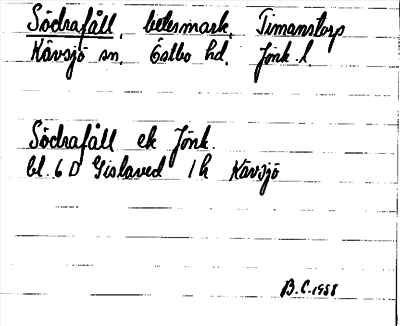 Södrafåll, betesmark, Timanstorp
Kävsjö sn. Östbo hd. Jönk. l.
Södrafåll ek Jönk.
bl. 6 D Gislaved 1 h Kävsjö
B.C. 1958